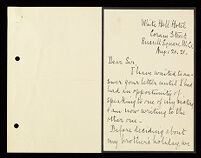 White Hall Hotel
Coram Street
Russell Square, W.C.
Aug. 20. 21.
Dear Sir,
I have waited to an-
swer your letter until I had
had an opportunity of
speaking to one of my
I am now writing to the
other one -
Before deciding about
my brother's holiday we